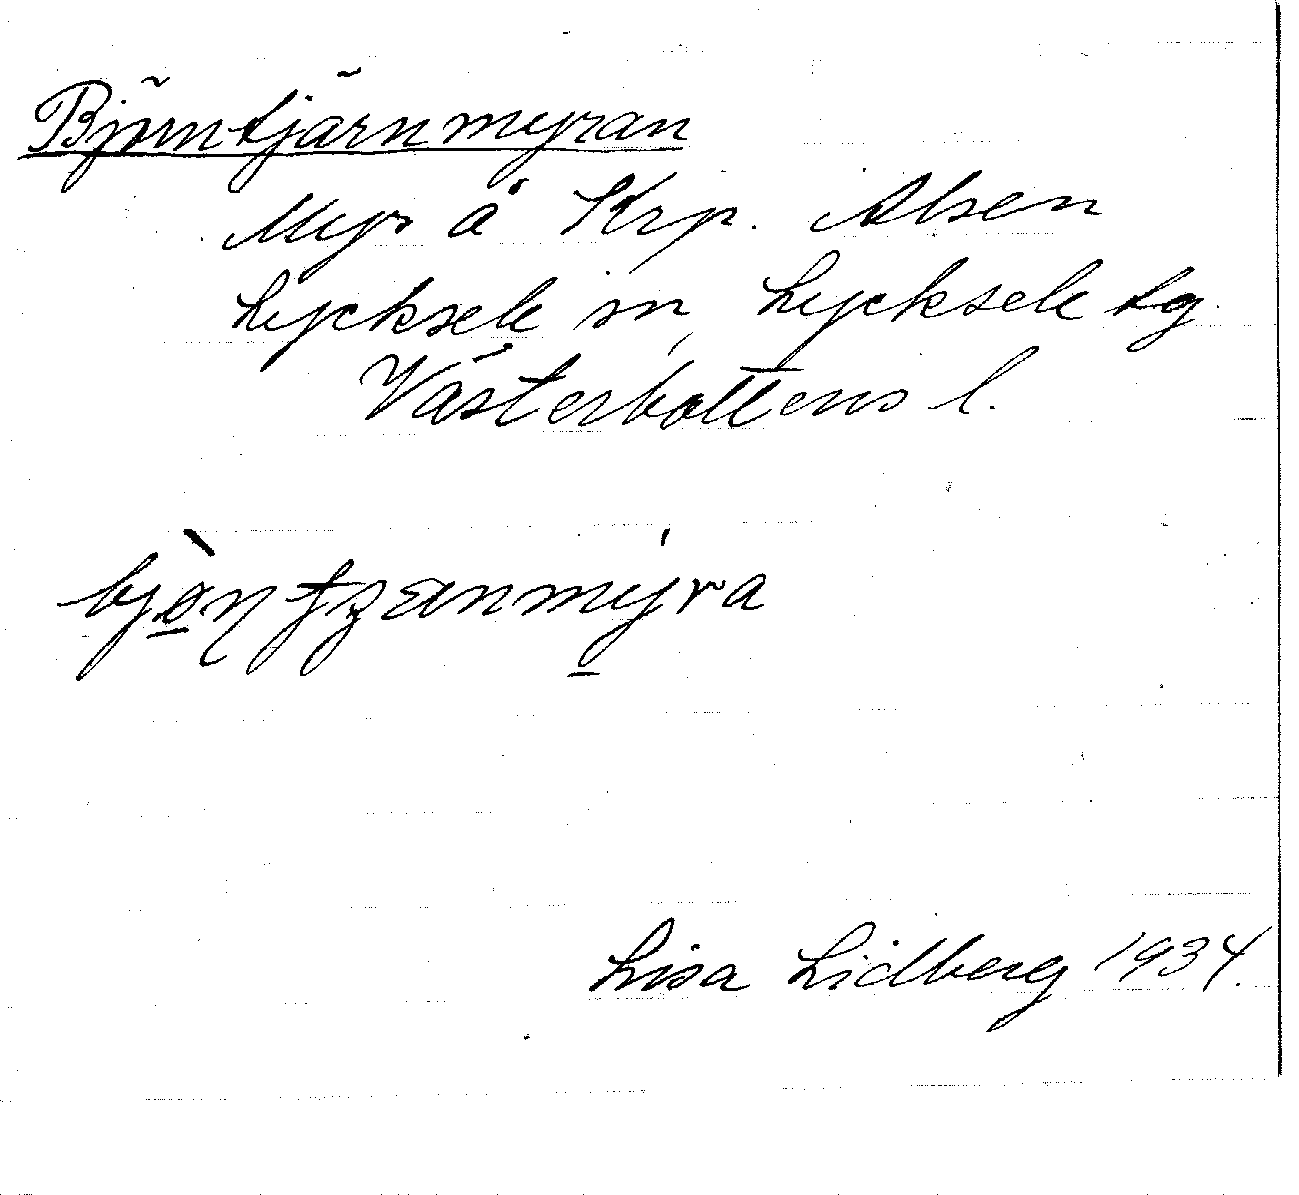 Björntjärnmyran
Myr å Krp. Alsen
Lycksele sn, Lycksele tg.
Västerbottens l.
Lisa Lidberg 1934.